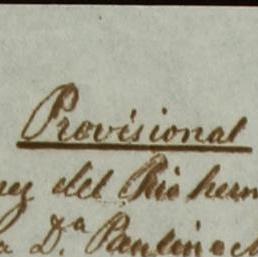 Provisional
ez del Rio hern
a D.ª Paulino